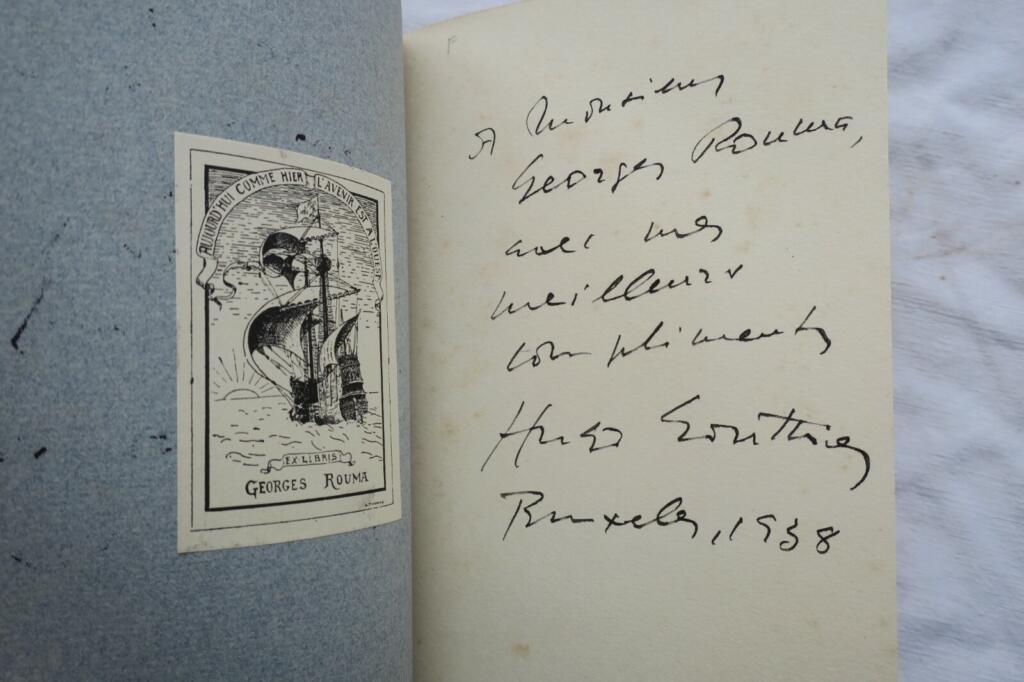 AUJOURD'HUI COMME HIER L'AVENIR EST A L'OUEST
EX-LIBRIS
GEORGES ROUMA
F
A Monsieur
Georges Rouma,
avec mes
meilleurs
compliments
Hugo Gouthier
Bruxeles, 1938